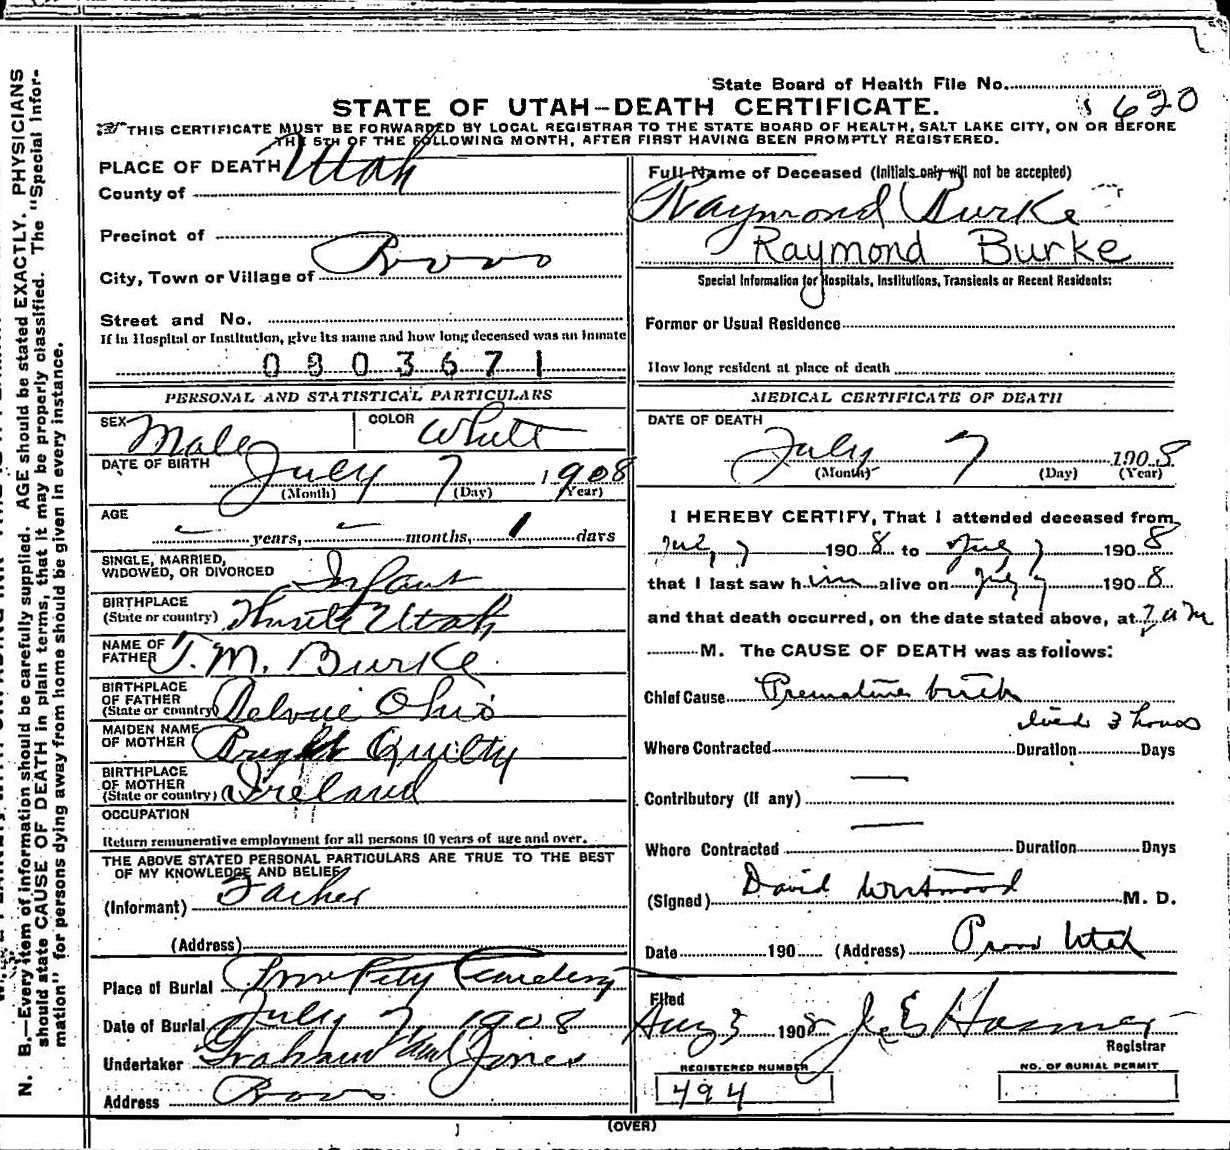 State Board of Health File No.
620
STATE OF UTAH—DEATH CERTIFICATE.
THIS CERTIFICATE MUST BE FORWARDED BY LOCAL REGISTRAR TO THE STATE BOARD OF HEALTH, SALT LAKE CITY, ON OR BEFORE
THE 5TH OF THE FOLLOWING MONTH, AFTER FIRST HAVING BEEN PROMPTLY REGISTERED.
N. B.—Every item of information should be carefully supplied. AGE should be stated EXACTLY. PHYSICIANS
should state CAUSE OF DEATH in plain terms, that it may be properly classified. The "Special Infor-
mation" for persons dying away from home should be given in every instance.
PLACE OF DEATH
County of Utah
Precinct of
City, Town or Village of Provo
Street and No.
If in Hospital or Institution, give its name and how long deceased was an inmate
0803671
PERSONAL AND STATISTICAL PARTICULARS
SEX Male COLOR White
DATE OF BIRTH July 7 1908
(Month) (Day) (Year)
AGE
years, months, 1 days
SINGLE, MARRIED,
WIDOWED, OR DIVORCED Infant
BIRTHPLACE
(State or country) Utah
NAME OF
FATHER T. M. Burke
BIRTHPLACE
OF FATHER
(State or country) Ohio
MAIDEN NAME
OF MOTHER Quilty
BIRTHPLACE
OF MOTHER
(State or country) Ireland
OCCUPATION
Return remunerative employment for all persons 10 years of age and over.
THE ABOVE STATED PERSONAL PARTICULARS ARE TRUE TO THE BEST
OF MY KNOWLEDGE AND BELIEF
(Informant) Father
(Address)
Place of Burial Provo City Cemetery
Date of Burial July 7 1908
Undertaker Graham Jones
Address Provo
Full Name of Deceased (Initials only will not be accepted)
Raymond Burke
Raymond Burke
Special Information for Hospitals, Institutions, Transients or Recent Residents:
Former or Usual Residence
How long resident at place of death
MEDICAL CERTIFICATE OF DEATH
DATE OF DEATH
July 7 1908
(Month) (Day) (Year)
I HEREBY CERTIFY, That I attended deceased from
July 7 1908 to July 7 1908
that I last saw him alive on July 7 1908
and that death occurred, on the date stated above, at 7 a m
M. The CAUSE OF DEATH was as follows:
Chief Cause Premature birth
lived 3 hours
Where Contracted Duration Days
Contributory (if any)
Where Contracted Duration Days
(Signed) David Westwood M. D.
Date 190 (Address) Provo Utah
Filed
Aug 3 1908 J. E. Hosmer
Registrar
REGISTERED NUMBER
494
NO. OF BURIAL PERMIT
(OVER)